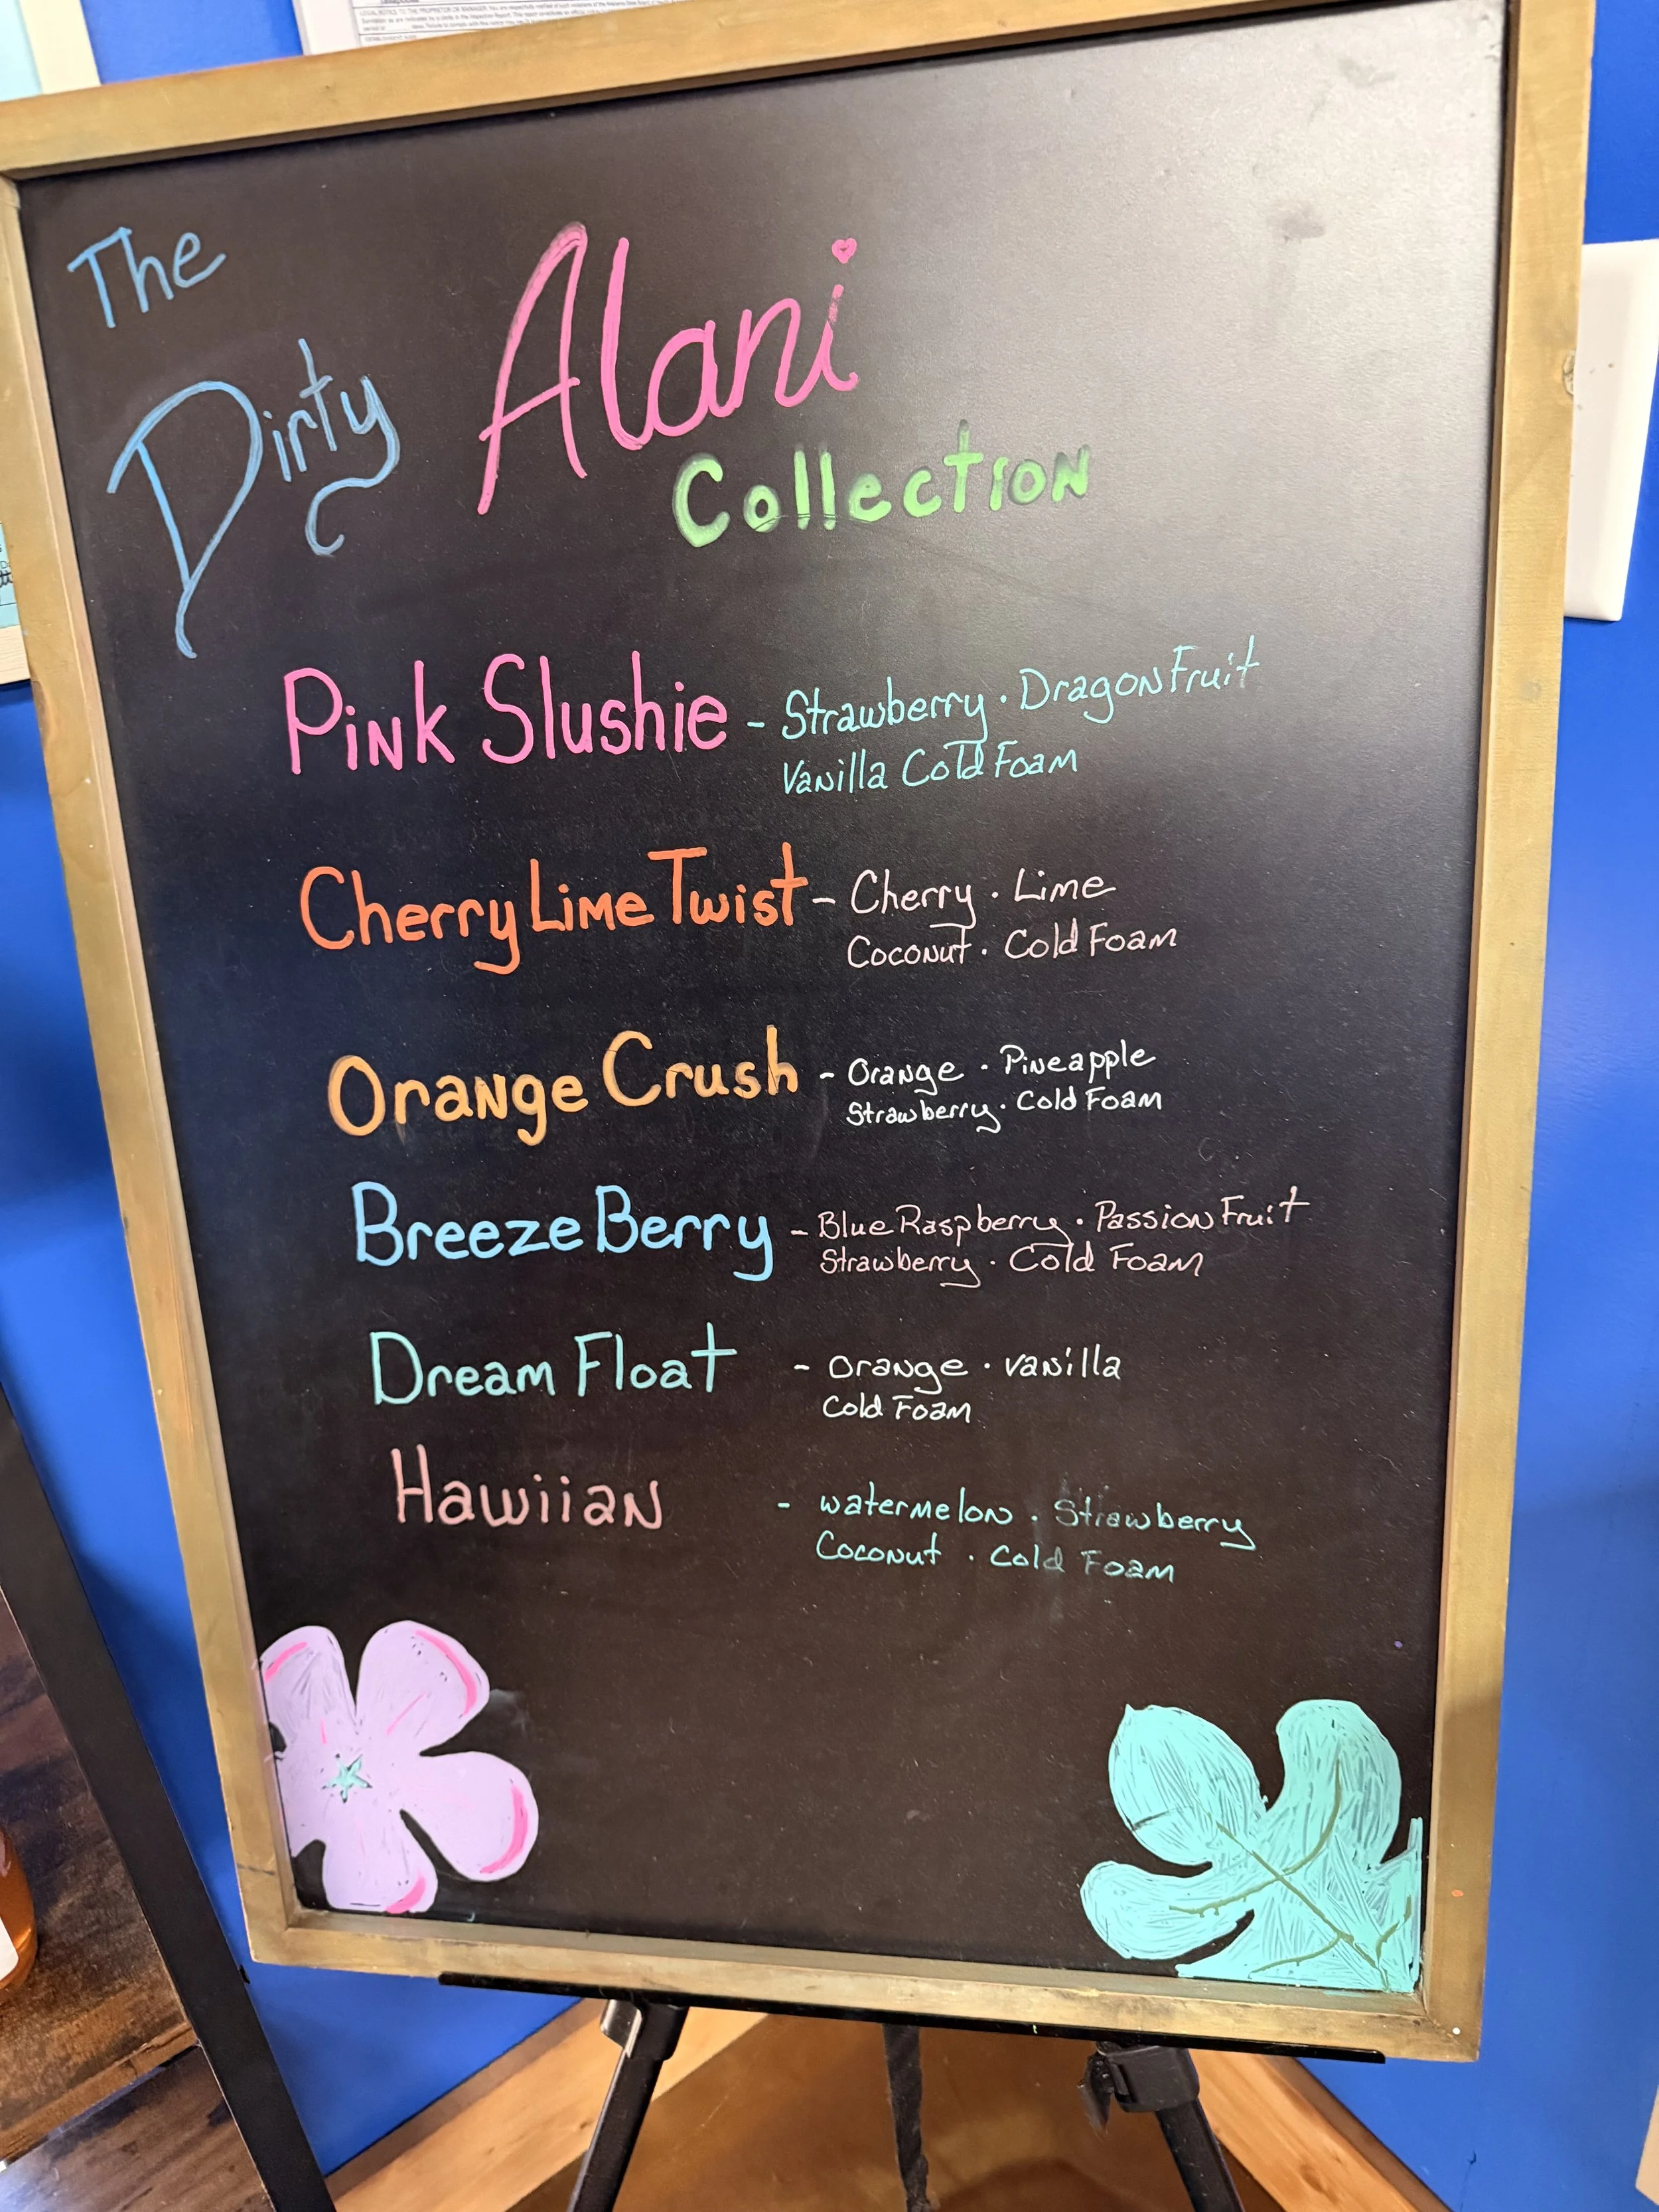 The
Dirty Alani
Collection
Pink Slushie - Strawberry · Dragon Fruit
Vanilla Cold Foam
Cherry Lime Twist - Cherry · Lime
Coconut · Cold Foam
Orange Crush - Orange · Pineapple
Strawberry · Cold Foam
Breeze Berry - Blue Raspberry · Passion Fruit
Strawberry · Cold Foam
Dream Float - Orange · Vanilla
Cold Foam
Hawiian - watermelon · Strawberry
Coconut · Cold Foam